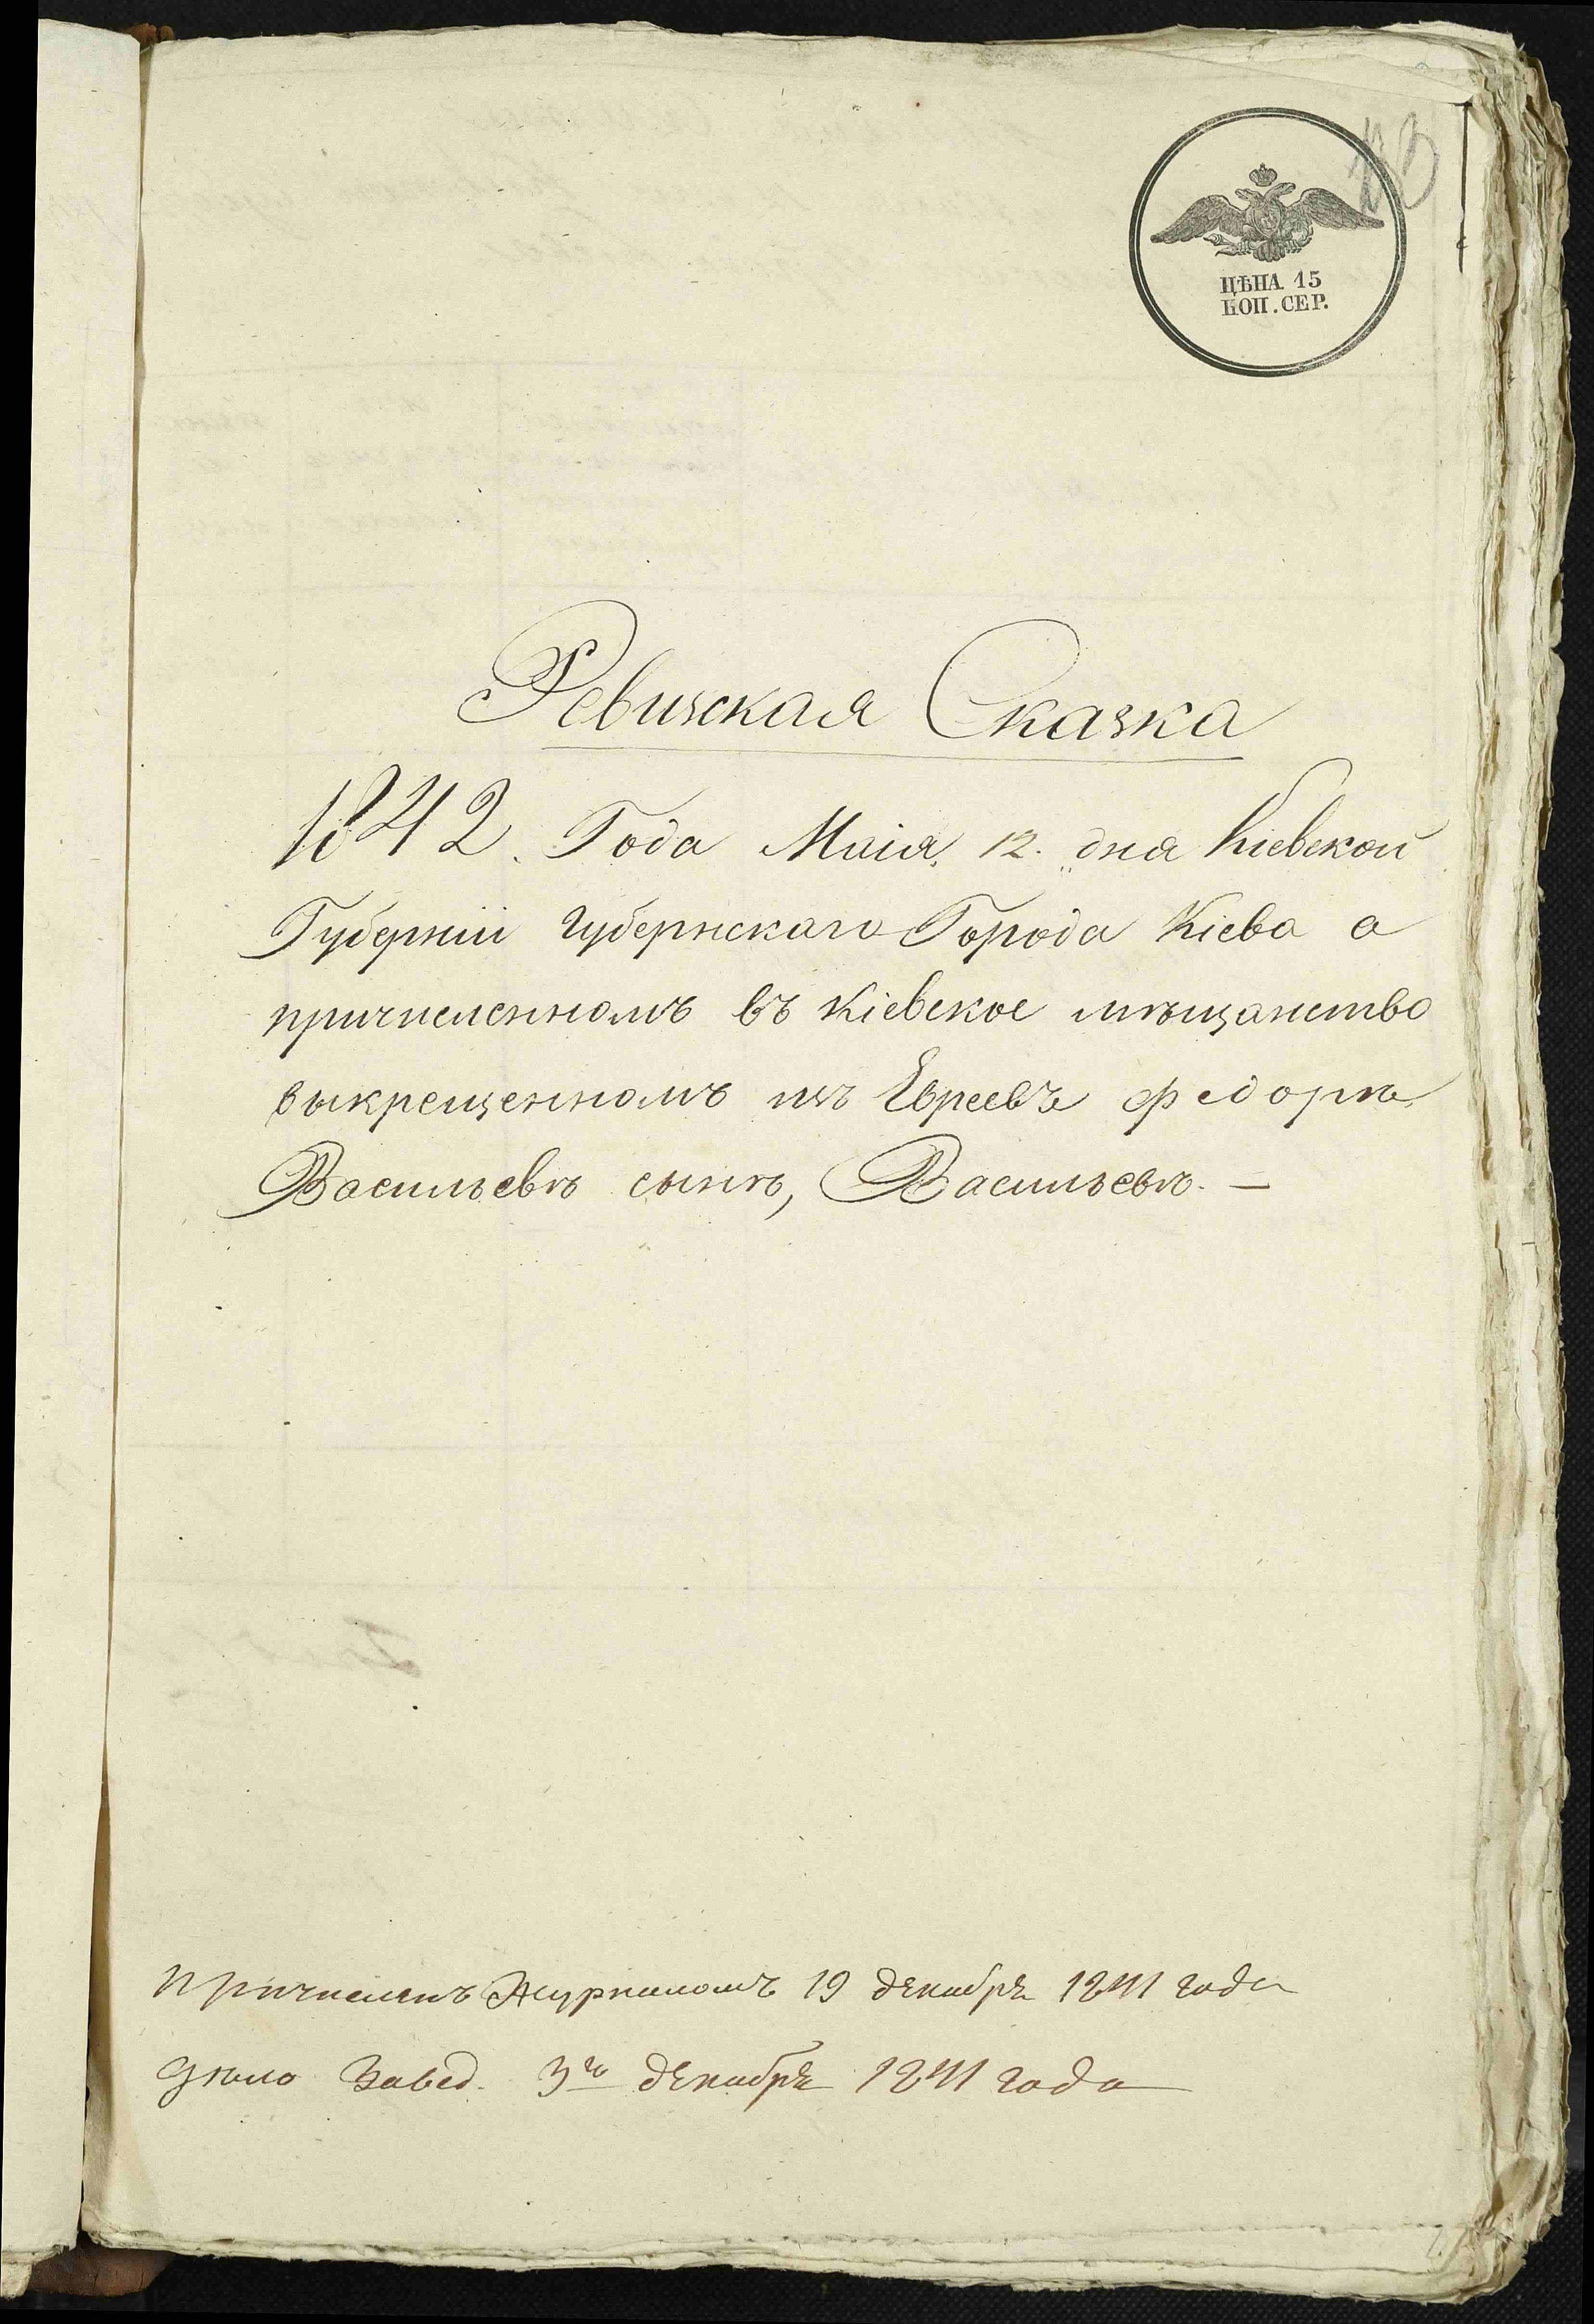 ЦѢНА 15
КОП. СЕР.
Ревизская Сказка
1842. Года Маія 12. дня Кіевской
Губерніи Губернскаго Города Кіева о
причисленномъ въ Кіевское мѣщанство
выкрещенномъ изъ Евреевъ Федорѣ
Васильевѣ сынѣ, Васильевѣ. —
Причисленъ Журналомъ 19 декабря 1841 года
Дѣло Завед. 3го декабря 1841 года